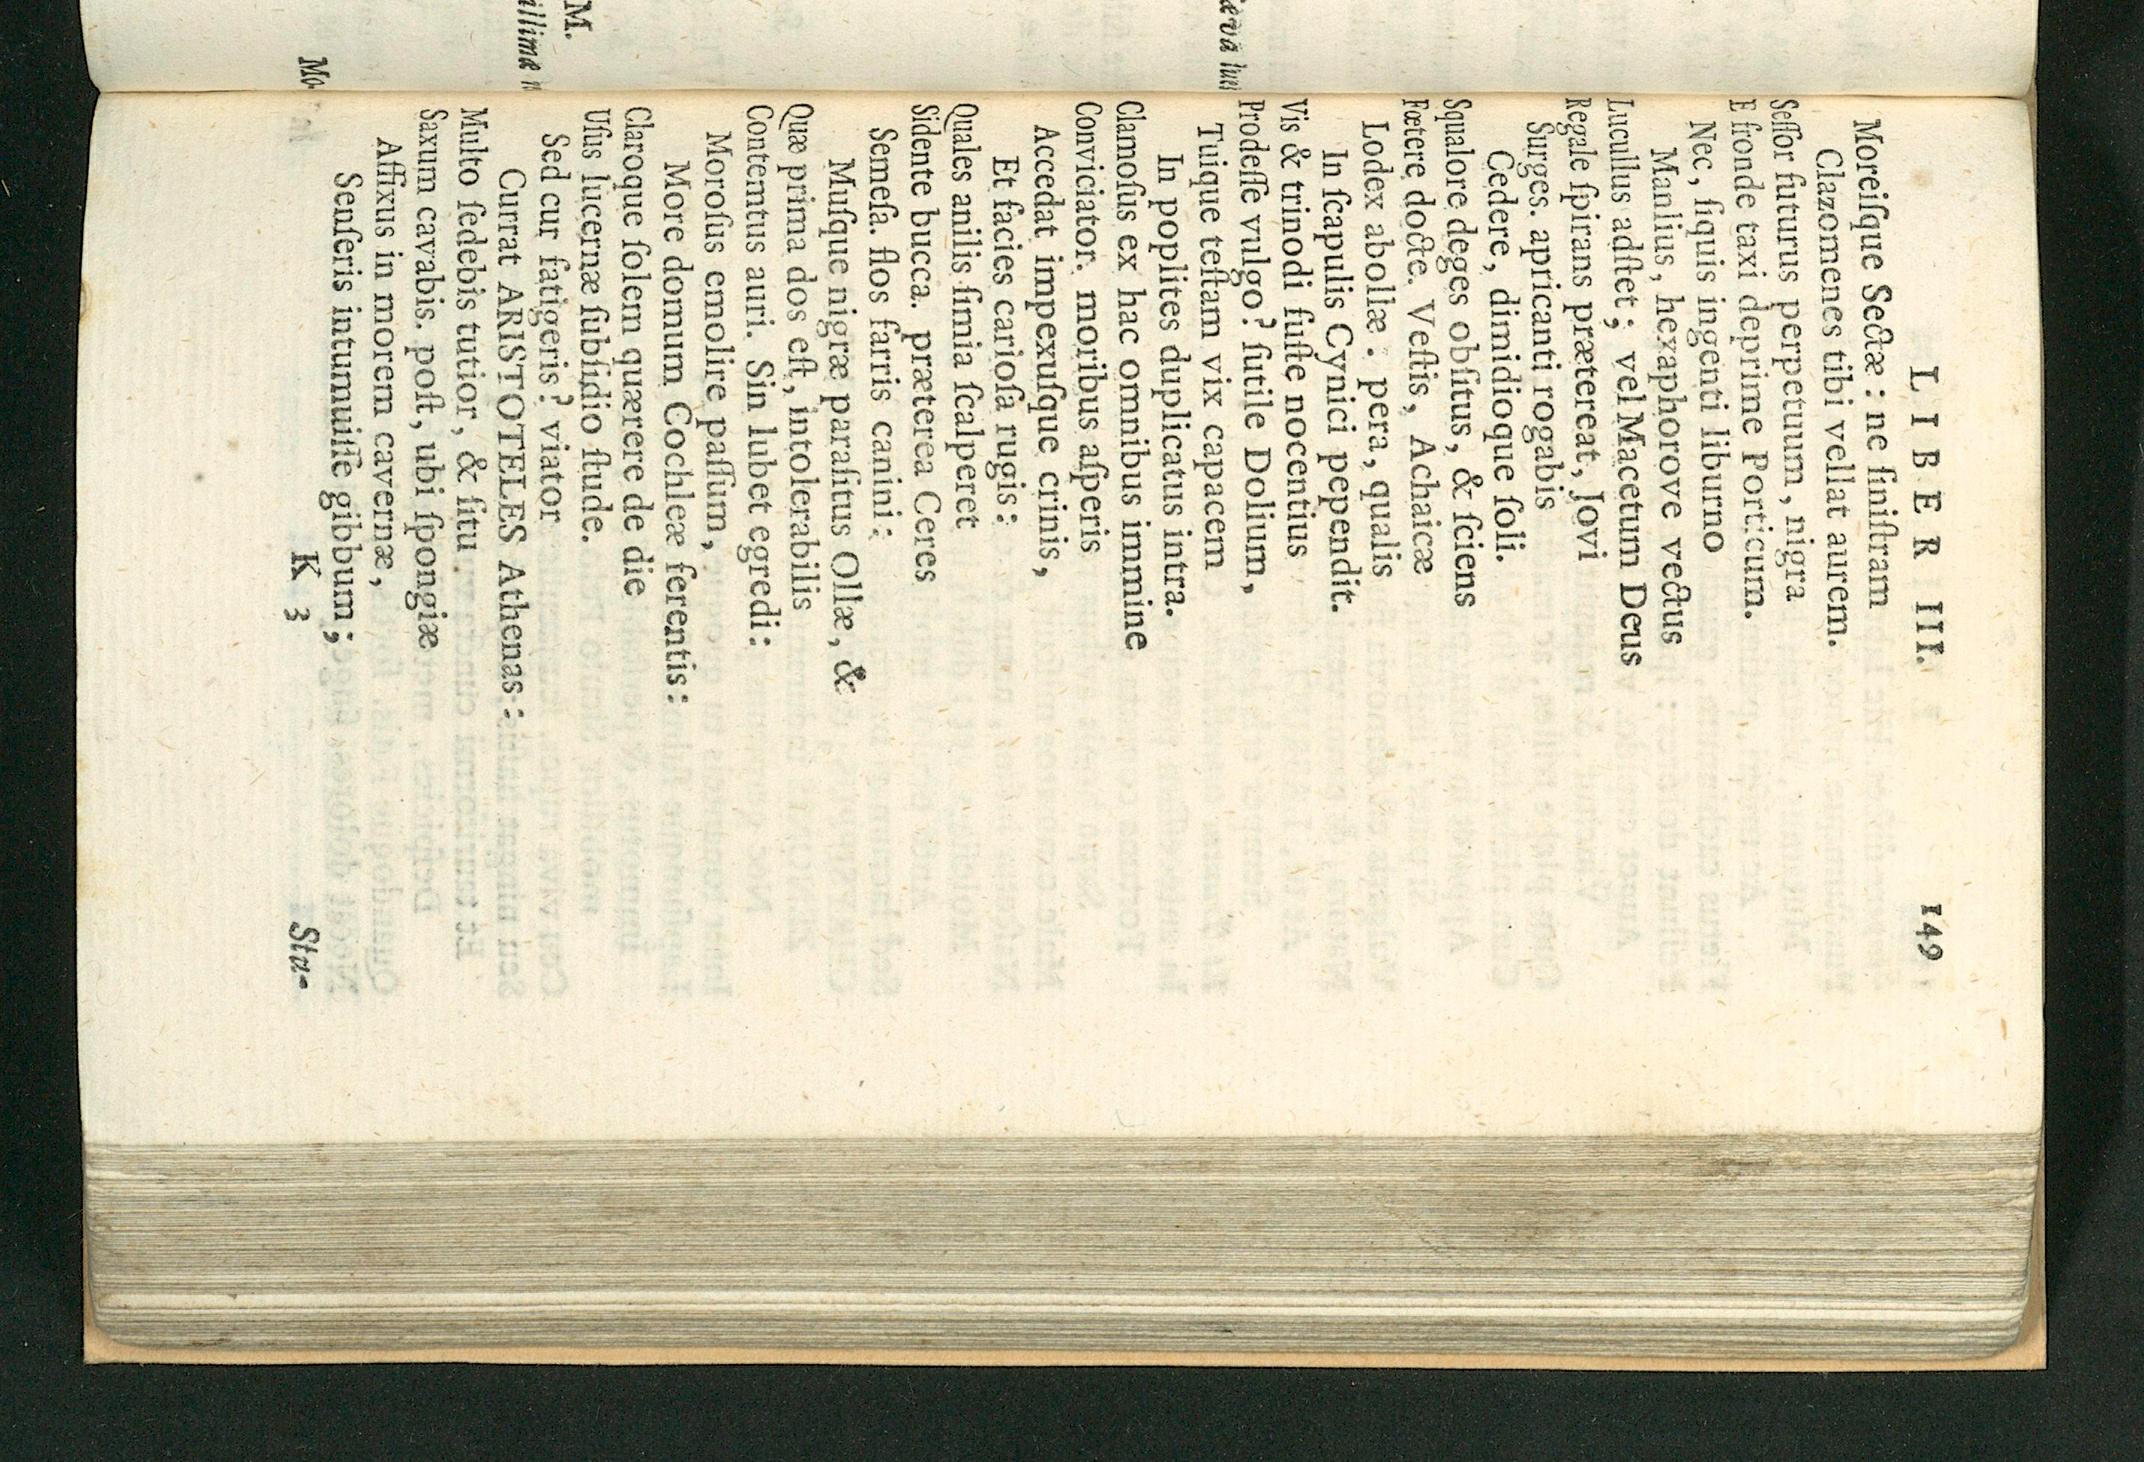 LIBER III. 149
Moreiſque Sectæ: ne ſiniſtram
Clazomenes tibi vellat aurem.
Seſſor futurus perpetuum, nigra
E fronde taxi deprime Porticum.
Nec, ſiquis ingenti liburno
Manlius, hexaphorove vectus
Lucullus adſtet; vel Macetum Deus
Regale ſpirans prætereat, Jovi
Surges. apricanti rogabis
Cedere, dimidioque ſoli.
Squalore deges obſitus, & ſciens
Fœtere docte. Veſtis, Achaicæ
Lodex abollæ. pera, qualis
In ſcapulis Cynici pependit.
Vis & trinodi fuſte nocentius
Prodeſſe vulgo? futile Dolium,
Tuique teſtam vix capacem
In poplites duplicatus intra.
Clamoſus ex hac omnibus immine
Conviciator. moribus aſperis
Accedat impexuſque crinis,
Et facies carioſa rugis:
Quales anilis ſimia ſcalperet
Sidente bucca. præterea Ceres
Semeſa. flos farris canini:
Muſque nigræ paraſitus Ollæ, &
Quæ prima dos eſt, intolerabilis
Contemtus auri. Sin lubet egredi:
Moroſus emolire paſſum,
More domum Cochleæ ferentis:
Claroque ſolem quærere de die
Uſus lucernæ ſubſidio ſtude.
Sed cur fatigeris? viator
Currat ARISTOTELES Athenas:
Multo ſedebis tutior, & ſitu
Saxum cavabis. poſt, ubi ſpongiæ
Affixus in morem cavernæ,
Senſeris intumuiſſe gibbum;
K 3 Sta-
M.
Mo-